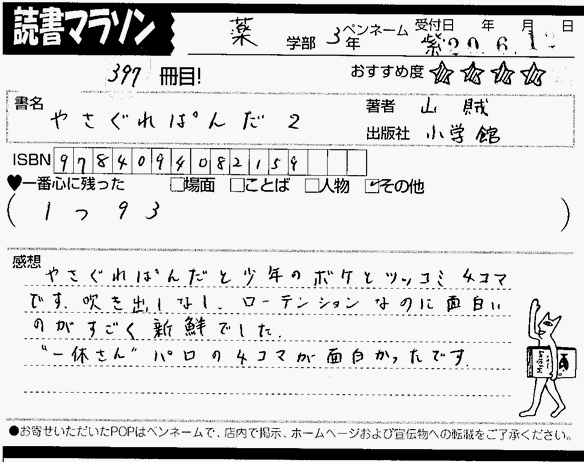 読書マラソン
薬 学部 3年 ペンネーム 紫 受付日 年 月 日
20.6.12
397 冊目! おすすめ度 ☆☆☆☆
書名 やさぐれぱんだ 2
著者 山賊
出版社 小学館
ISBN 9784094082159
♥一番心に残った □場面 □ことば □人物 ☑その他
( 1つ93 )
感想
やさぐれぱんだと少年のボケとツッコミ4コマ
です.吹き出しなし、ローテンションなのに面白い
のがすごく新鮮でした.
"一休さん"パロの4コマが面白かったです
●お寄せいただいたPOPはペンネームで、店内で掲示、ホームページおよび宣伝物への転載をご了承ください。